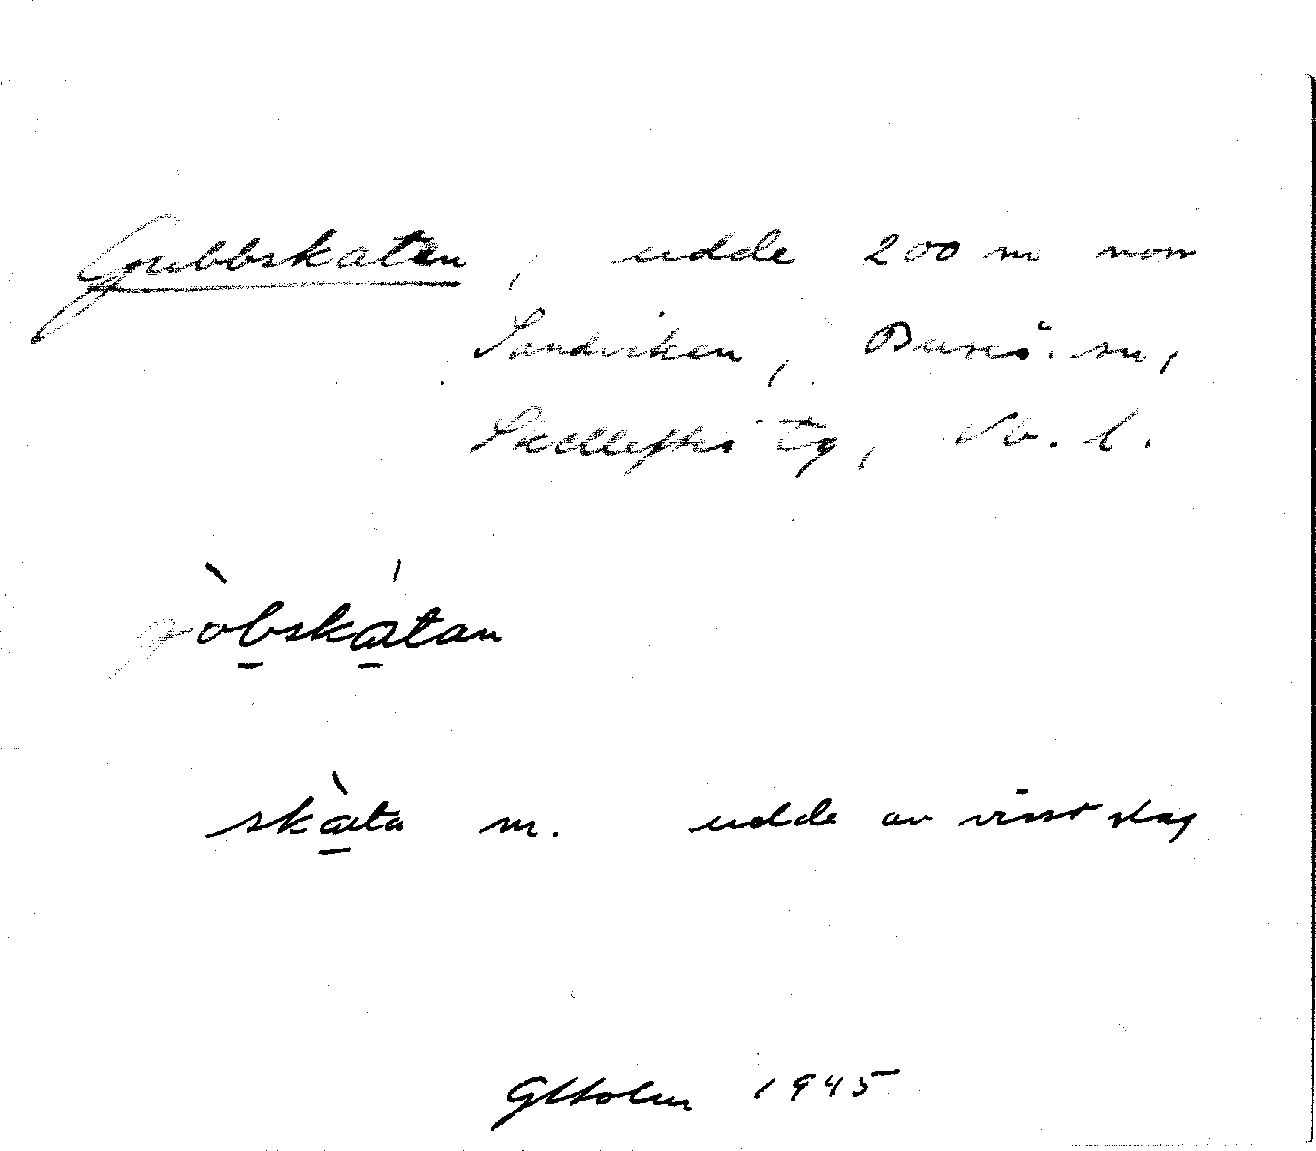 Gubbskaten, udde 200 m norr
Sandviken, Bureå sn,
Skellefteå tg, Vb. l.
gòbskátan
skàta m. udde av visst slag
G Holm 1945